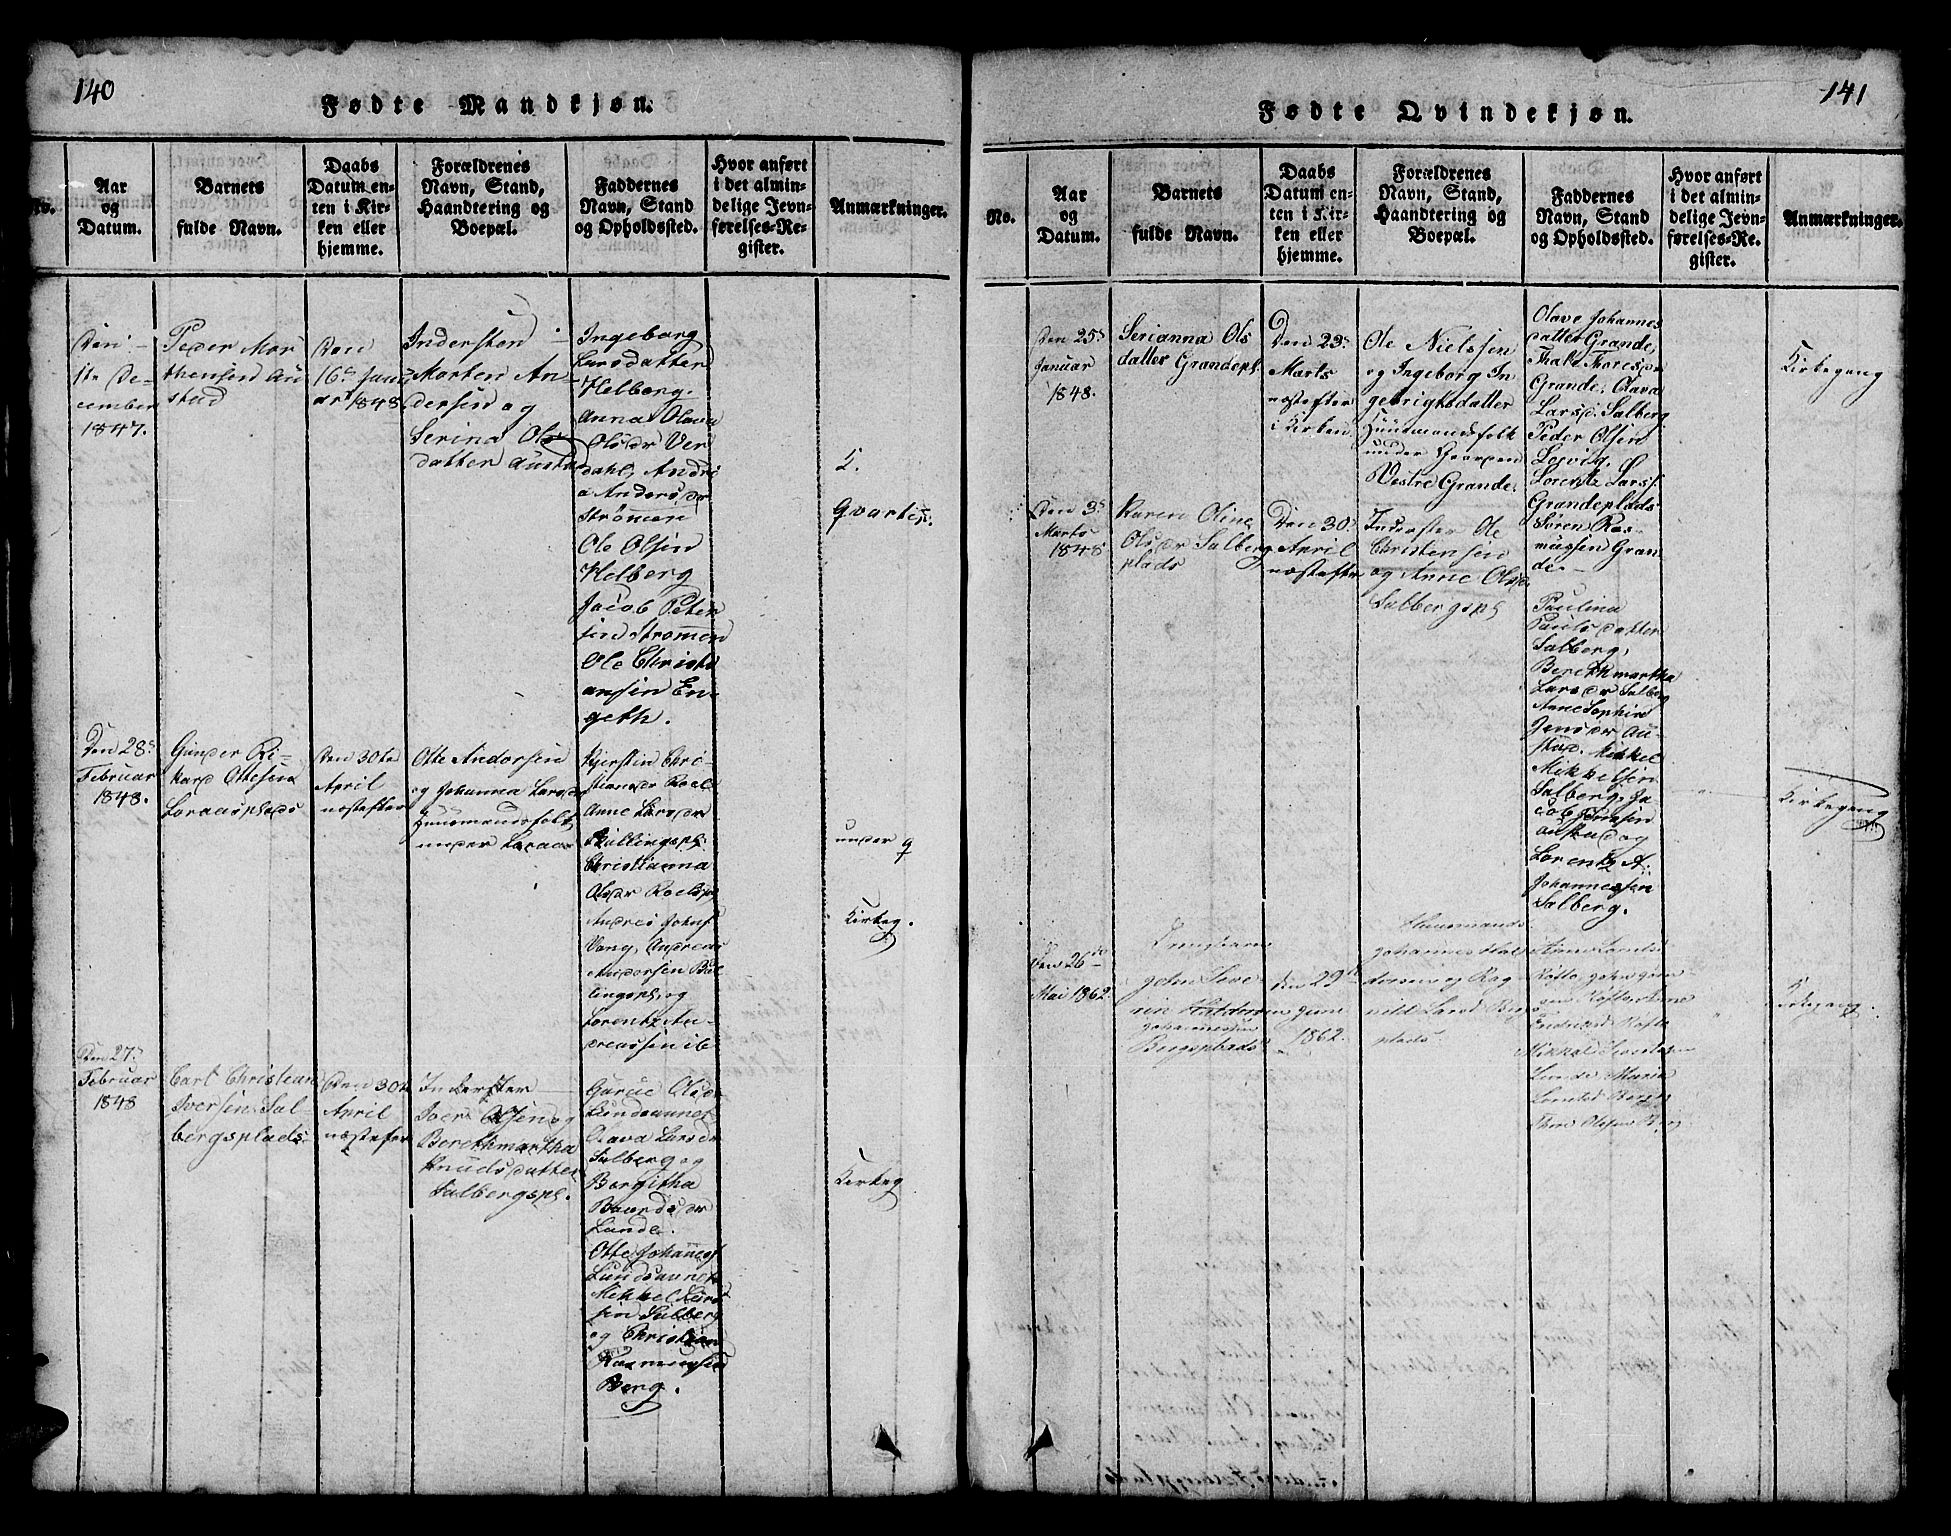 140
Fødte Mandkjøn.
No.
Aar
og
Datum.
Barnets
fulde Navn.
Daabs
Datum en-
ten i Kir-
ken eller
hjemme.
Forældrenes
Navn, Stand,
Haandtering og
Boepæl.
Faddernes
Navn, Stand
og Opholdssted.
Hvor anført
i det almin-
delige Jevn-
førelses-Re-
gister.
Anmærkninger.
Den
1ste De-
cember
1847.
Peder Mor
thensen Au
stad
Den
16de Janu
ar 1848.
Indersten
Morten An-
dersen og
Serina Ols
datter Austa
Ingeborg
Larsdatter
Helberg.
Anna Olava
Olsdr Ver
dahl, Andri
a Andersdr
Strømen
Ole Olsen
Helberg
Jacob Peter
sen Strømen
Ole Christi
ansen En-
geth.
Qvartis.
Den 28de
Februar
1848.
Gunder Ri-
kard Ottesen
Loraasplads
Den 30te
April
næstefter
Otte Andersen
og Johanna Larsdr
Huusmandsfolk
under Loraas
Kjerstin Chri-
stiansdr Roel
Anne Larsdr
Christianna
Olsdr Roelspl
Andres Johns
Vang, Andreas
Andersen Bal
lingspl, og
Lorentz An-
dreassen ib
under
Kirkeg.
Den 27de
Februar
1848
Carl Christian
Iversen Sal-
bergsplads
Den 30te
April
næstefter
Inderster
Iver Olsen og
Berethmartha
Knudsdatter
Salbergspl.
Gurue Olsdr
Lundsaunet
Olava Larsdr
Salberg og
Borgitha
Baardsdr
Lunde.
Otte Johannes
Lundsaunet
Mikkel Lar
sen Salberg
og Christian
Rasmussen
Berg.
Kirkeg
141
Fødte Qvindekjøn.
No.
Aar
og
Datum.
Barnets
fulde Navn.
Daabs
Datum en-
ten i Kir-
ken eller
hjemme.
Forældrenes
Navn, Stand,
Haandtering og
Boepæl.
Faddernes
Navn, Stand
og Opholdssted.
Hvor anført
i det almin-
delige Jevn-
førelses-Re-
gister.
Anmærkninger.
Den 25de
Januar
1848.
Serianna Ols
datter Grandepl.
Den 23de
Marts
næstefter
i Kirken
Ole Nielssen
og Ingeborg In
gebrigtsdatter
Huusmandsfolk
under Gaarden
Vestre Grande.
Olave Johannes
datter Grande,
Thale Thoresdr
Grande, Olava
Larsd. Salberg
Peder Olsen
Lorentz Lars.
Grandeplads
Søren Ras-
mussen Gran
de.
Kirkegang
Den 3de
Marts
1848
Karen Oline
Olsdr Salberg
plads
Den 30te
April
næstefter
Inderster Ole
Christensen
og Anne Olsdr
Salbergspl
Paulina
Paulsdatter
Salberg,
Berethmartha
Larsdr Salberg
Anne Sophie
Jensdr Au-
stad. Mikkel
Mikkelsen
Salberg, Ja
cob Jensen
Austad og
Lorentz A.
Johannessen
Salberg.
Kirkegang
Den 26de
Mai 1862.
Drengbarn
John Seve
rin Haldorsen
Johannessen
Bergsplads
den 29de
Juni
1862.
Huusmands
Johannes Hal
dorsen og Rag
nild Larsd Bergs
plads
Kirkegang.